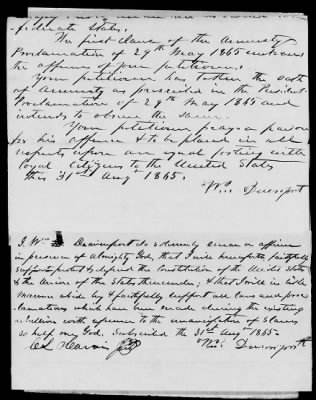 federate States.
The first clause of the Amnesty
Proclamation of 29th May 1865 embraces
the offences of your petitioner.
Your petitioner has taken the oath
of Amnesty as prescribed in the President
Proclamation of 29th May 1865 and
intends to observe the same.
Your petitioner prays a pardon
for his offences & to be placed in all
respects upon an equal footing with
loyal citizens to the United States
this 31st Augt 1865.
Wm Davenport
I, Wm Davenport do solemnly swear or affirm
in presence of Almighty God, that I will henceforth faithfully
support, protect & defend the Constitution of the United States
& the Union of the States thereunder, & that I will in like
manner abide by & faithfully support all laws and proc
lamations which have been made during the existing
rebellion with reference to the emancipation of slaves
so help me God. Subscribed the 31st Augt 1865.
Wm Davenport